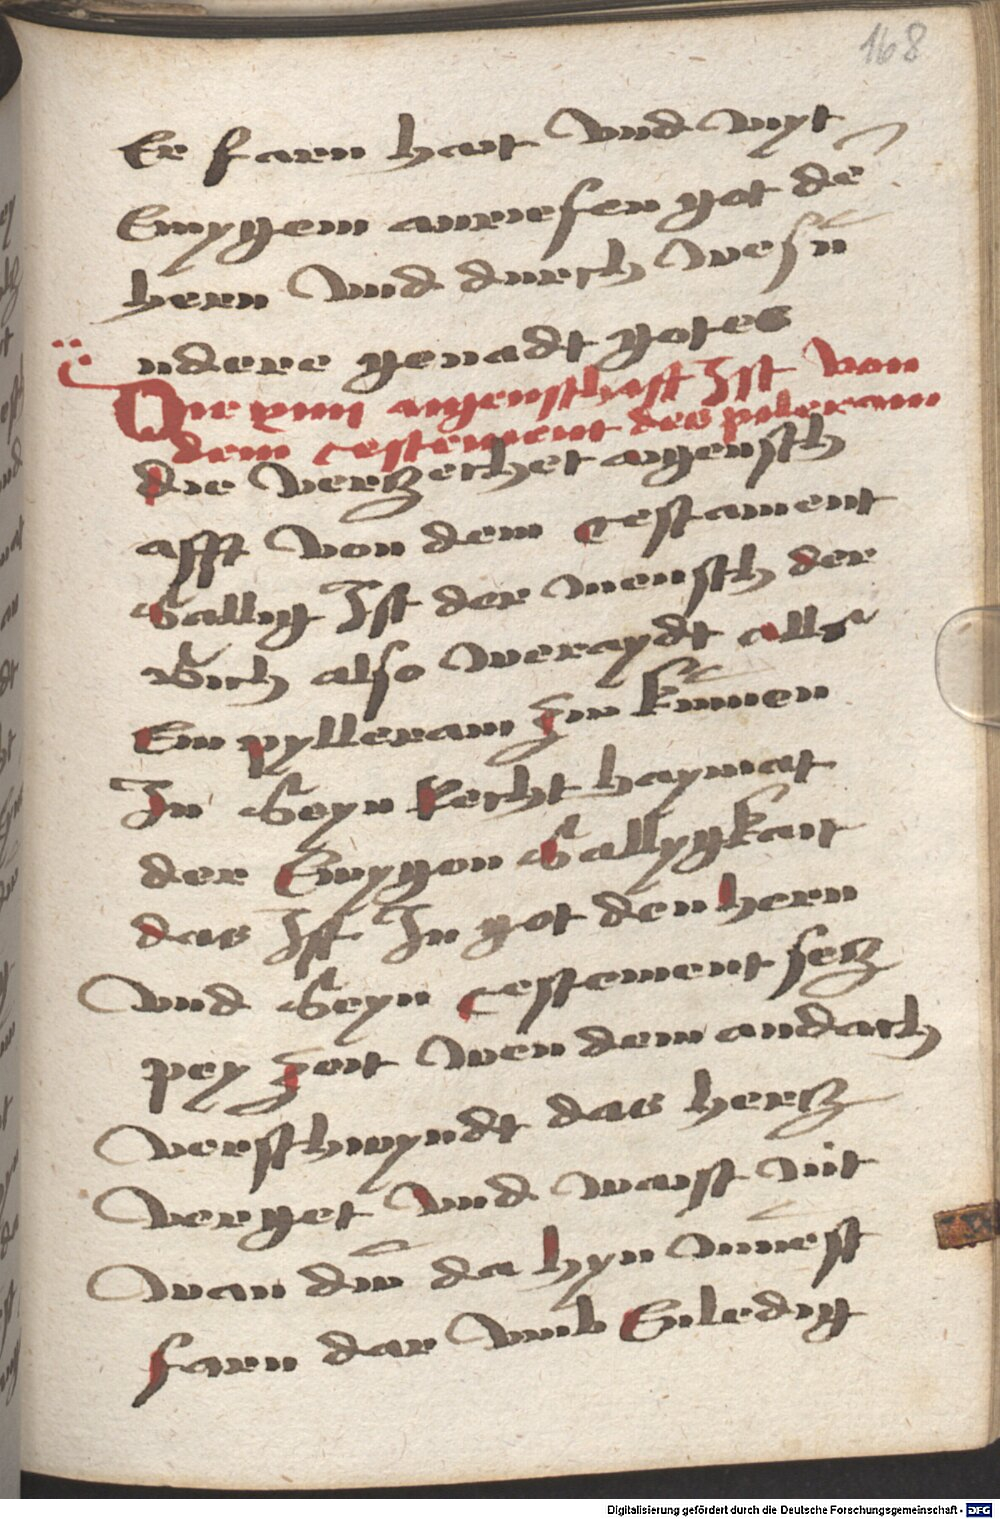 168
Er farn hat Vnd wyt
Ewygem anruefen got de͂
hern Vnd durch wesu͂
ndere genadt gotes
Die xiiii aigensthafft Ist Von
dem testement des pileram
die Verzechet aigensth
afft Von dem testament
Sallig Ist der mensth der
Sich also weraydt alls
Ein pylleram zw ku͂men
In Seyn Recht haymat
der Ewygon Sallygkait
das Ist In got den hern
Vnd Seyn testement secz
pey zeit wen dem andach
Versthwyndt das hercz
Verget Vnd waist nit
wan du͂ da hyn mu͂est
farn dar Vmb Erledig
Digitalisierung gefördert durch die Deutsche Forschungsgemeinschaft - DFG